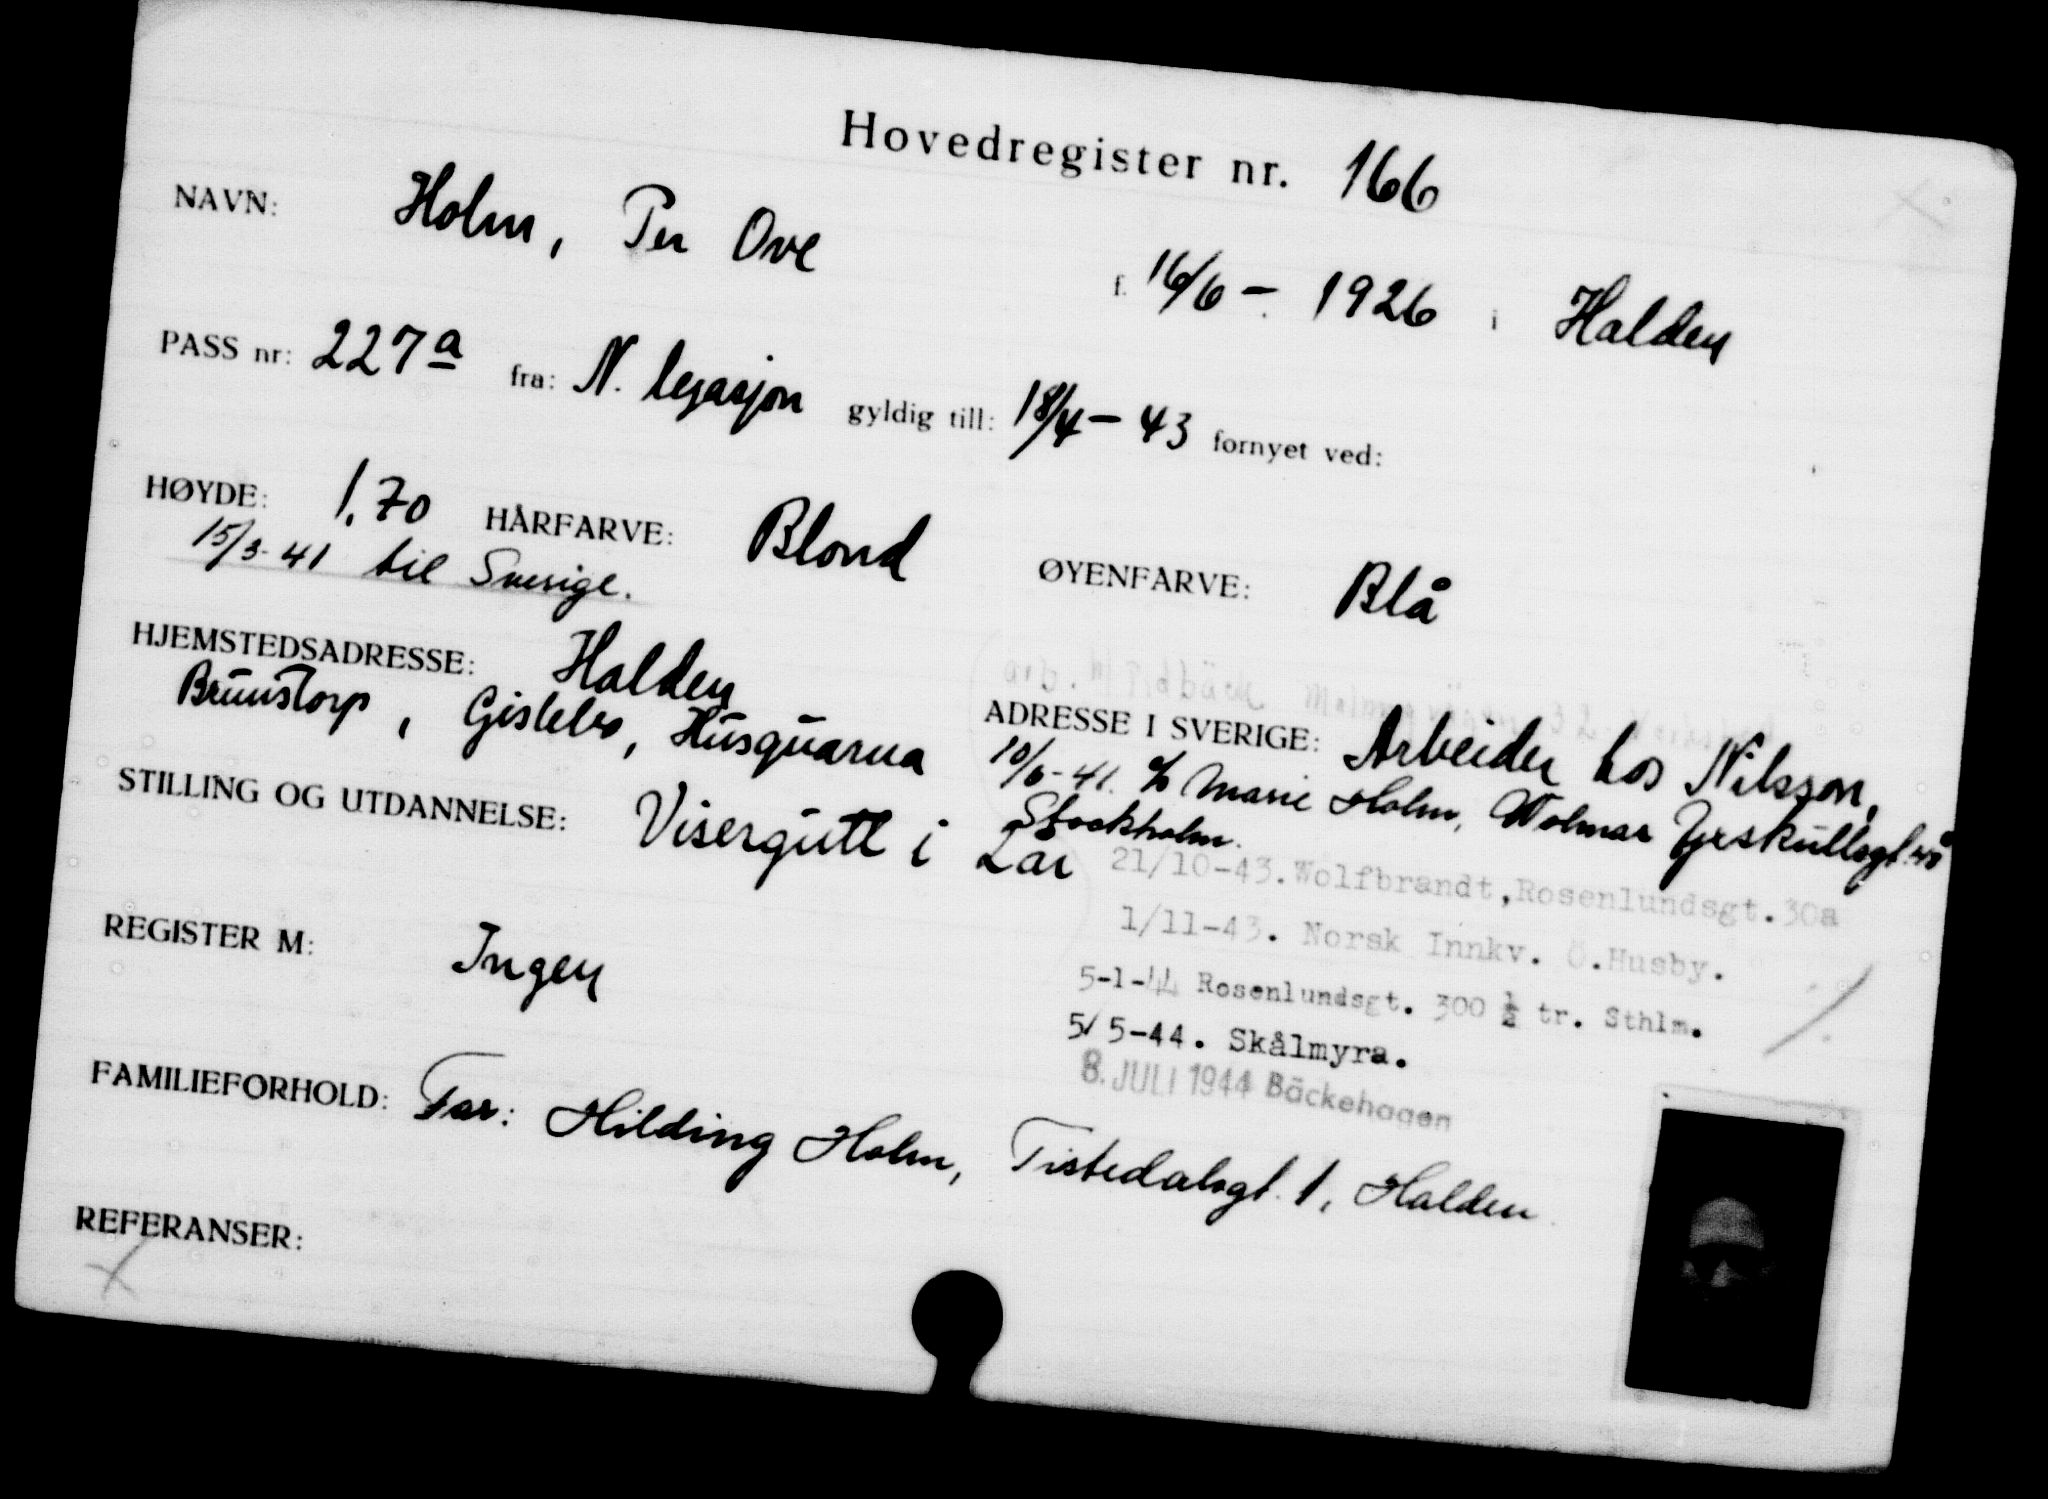 Hovedregister nr. 166
NAVN: Holm, Per Ove f. 16/6 - 1926 i Halden
PASS nr: 227a fra: N. legasjon gyldig till: 18/4 - 43 fornyet ved:
HØYDE: 1,70 HÅRFARVE: Blond ØYENFARVE: Blå
15/3-41 til Sverige.
HJEMSTEDSADRESSE: Halden
ADRESSE I SVERIGE: Arbeider hos Nilsson,
Brunstorp, Gislebo, Husquarna
10/6-41. c/o Marie Holm, Wolmar Yxskullsgt.
Stockholm.
STILLING OG UTDANNELSE: Visergutt i Lær
21/10-43. Wolfbrandt, Rosenlundsgt. 30a
1/11-43. Norsk Innkv. Ö.Husby.
REGISTER M: Ingen
5-1-44 Rosenlundsgt. 300 ½ tr. Sthlm.
5/5-44. Skålmyra.
8. JULI 1944 Bäckehagen
FAMILIEFORHOLD: Far: Hilding Holm, Tistedalsgt. 1, Halden.
REFERANSER: